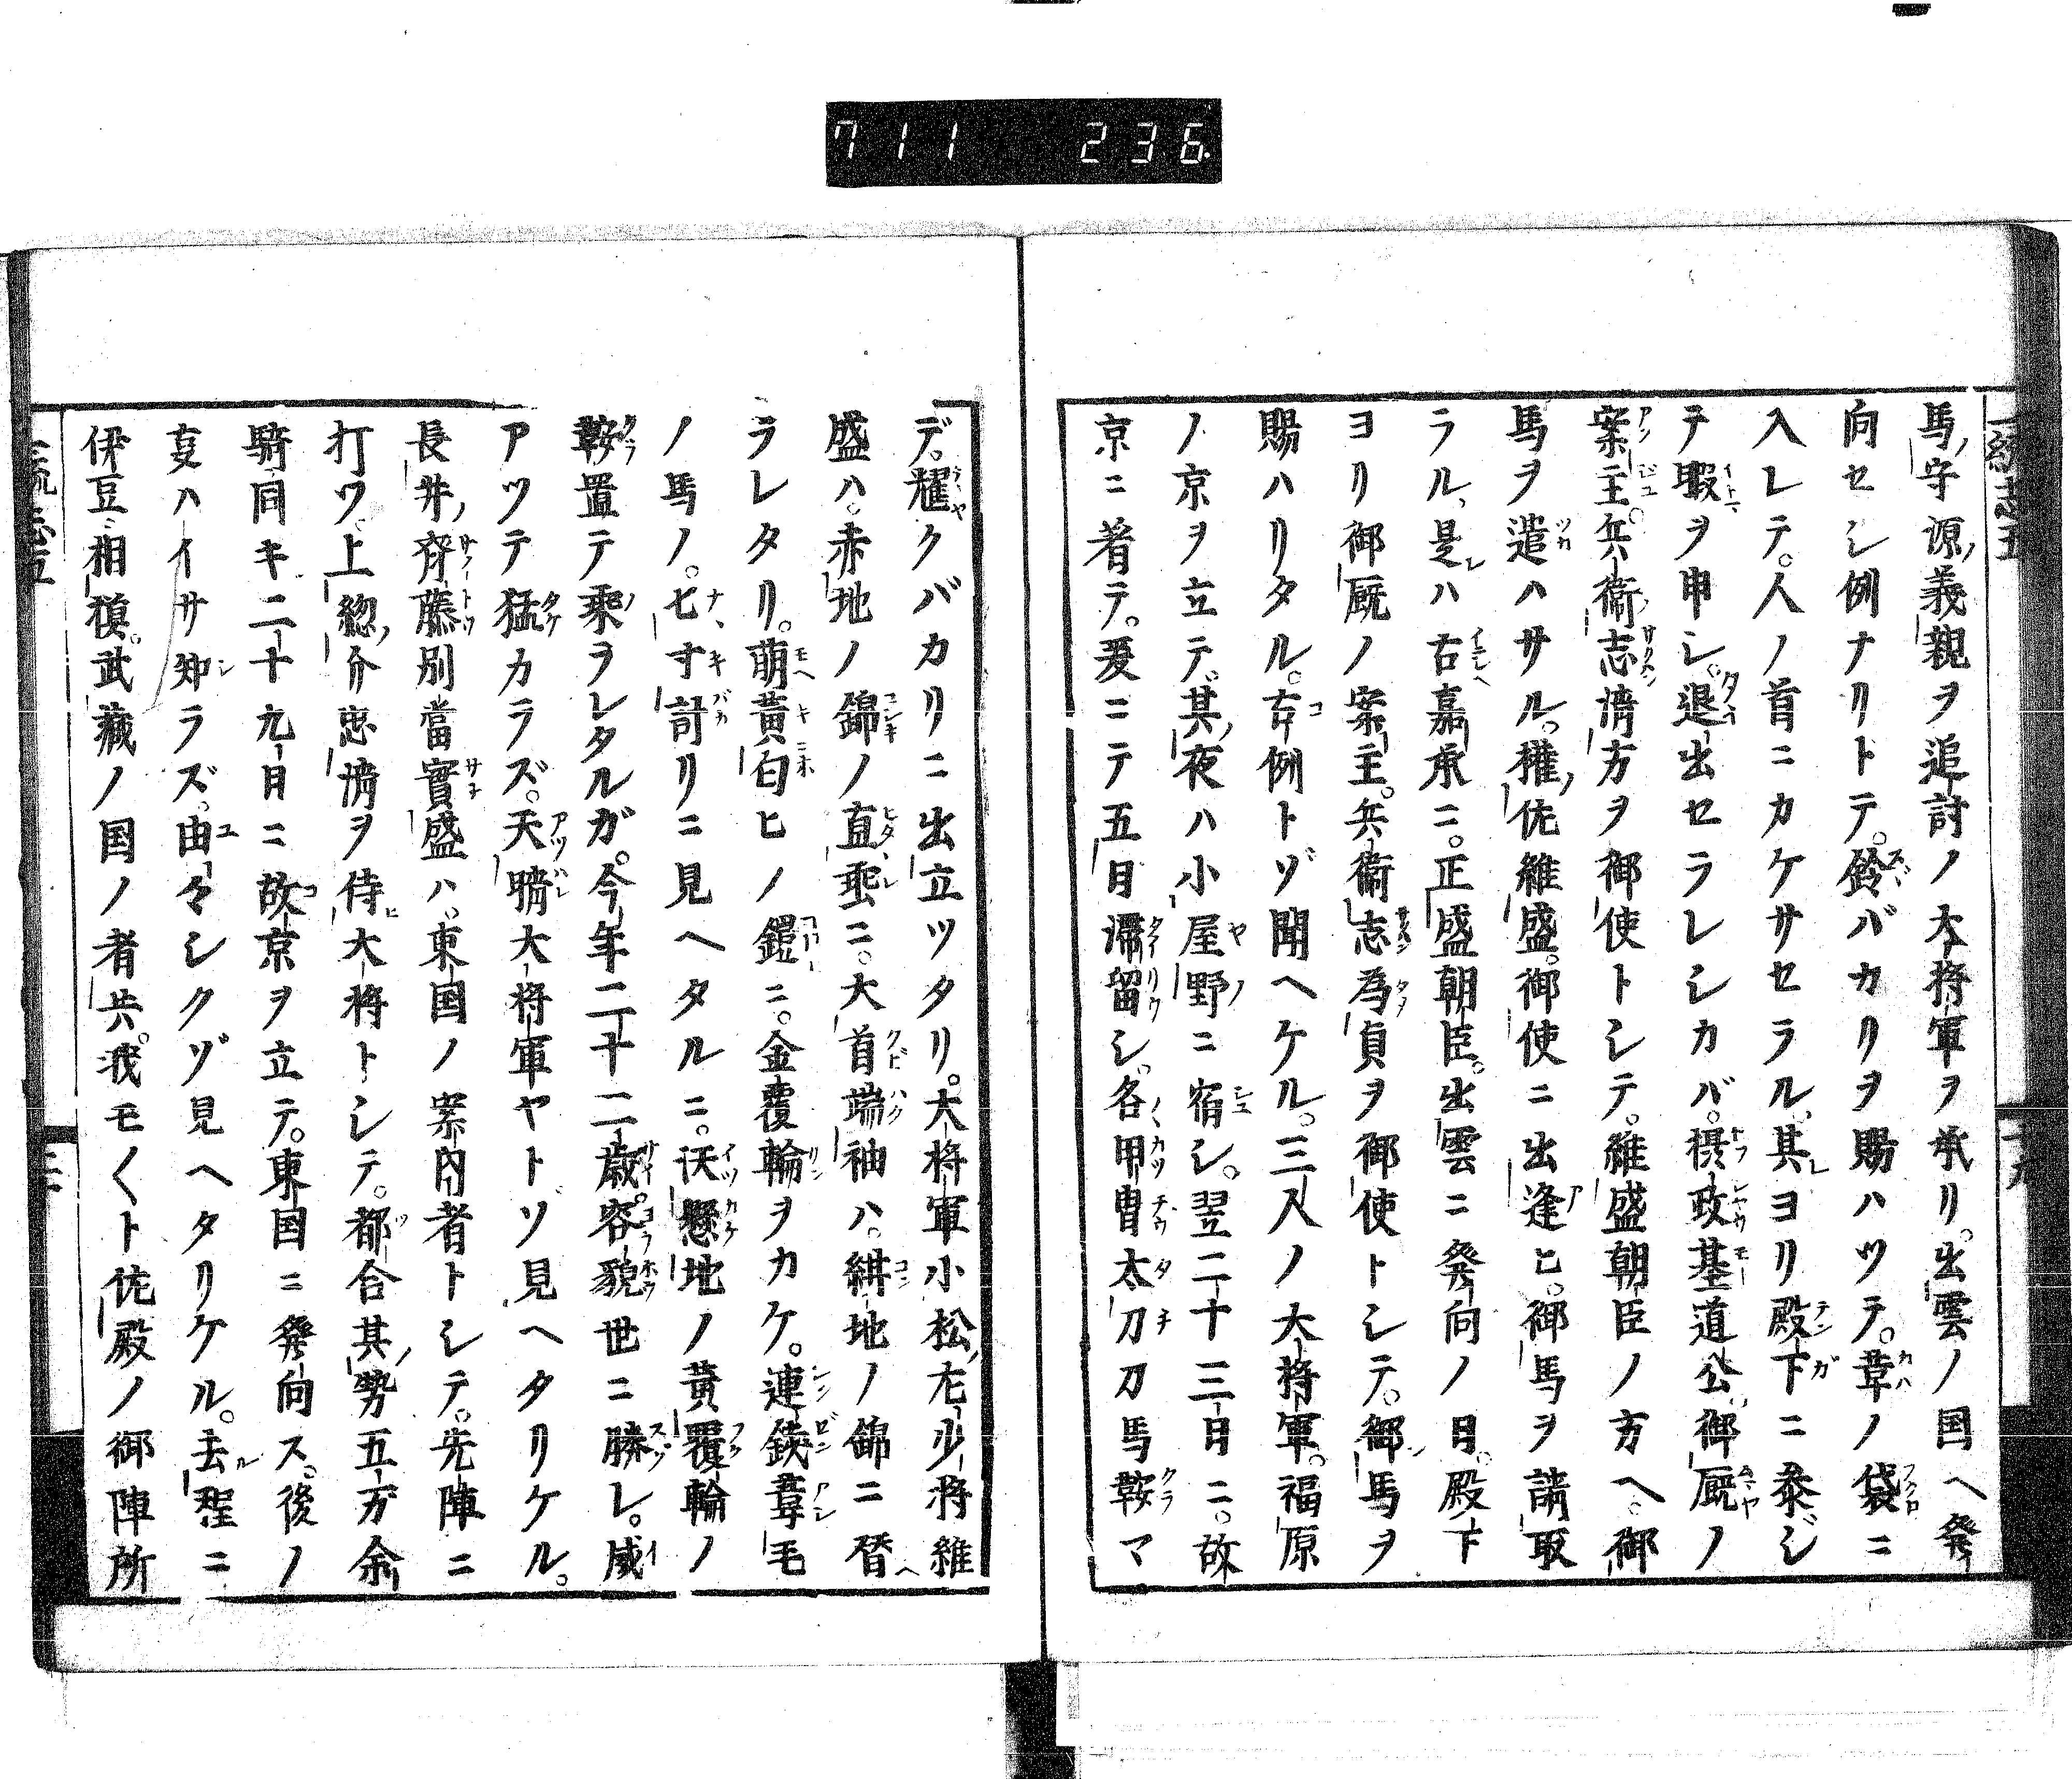 711 236
馬ノ守源ノ義親ヲ追討ノ大将軍ヲ承リ。出雲ノ国ヘ発
向セシ例ナリトテ。鈴バカリヲ賜ハツテ。韋ノ袋ニ
入レテ。人ノ首ニカケサセラル。其ヨリ殿下ニ參ジ
テ暇ヲ申シ。退出セラレシカバ。摂政基道公。御厩ノ
案主。兵衞志清方ヲ御使トシテ。維盛朝臣ノ方ヘ。御
馬ヲ遣ハサル。權ノ佐維盛。御使ニ出逢ヒ。御馬ヲ請取
ラル。是ハ古嘉承ニ。正盛朝臣。出雲ニ発向ノ日。殿下
ヨリ御厩ノ案主。兵衞志為貞ヲ御使トシテ。御馬ヲ
賜ハリタル。古例トゾ聞ヘケル。三人ノ大将軍。福原
ノ京ヲ立テ。其ノ夜ハ小屋野ニ宿シ。翌二十三日ニ。故
京ニ着テ。爰ニテ五日滯留シ。各甲冑太刀刀馬鞍マ
デ。耀クバカリニ出立ツタリ。大将軍小松ノ左少将維
盛ハ。赤地ノ錦ノ直垂ニ。大首端袖ハ。紺地ノ錦ニ替
ラレタリ。萌黄匂ヒノ鎧ニ。金覆輪ヲカケ。連錢葦毛
ノ馬ノ。七寸計リニ見ヘタルニ。沃懸地ノ黄覆輪ノ
鞍置テ乘ラレタルガ。今年二十二歳。容貌世ニ勝レ。威
アツテ猛カラズ。天晴大将軍ヤトゾ見ヘタリケル。
長井ノ齊藤別當實盛ハ。東国ノ案内者トシテ。先陣ニ
打ツ。上総ノ介忠清ヲ侍大将トシテ。都合其ノ勢五万余
騎同キ二十九日ニ故京ヲ立テ。東国ニ発向ス。後ノ
事ハイサ知ラズ。由々シクゾ見ヘタリケル。去程ニ
伊豆相模。武藏ノ国ノ者共。我モ〱ト佐殿ノ御陣所